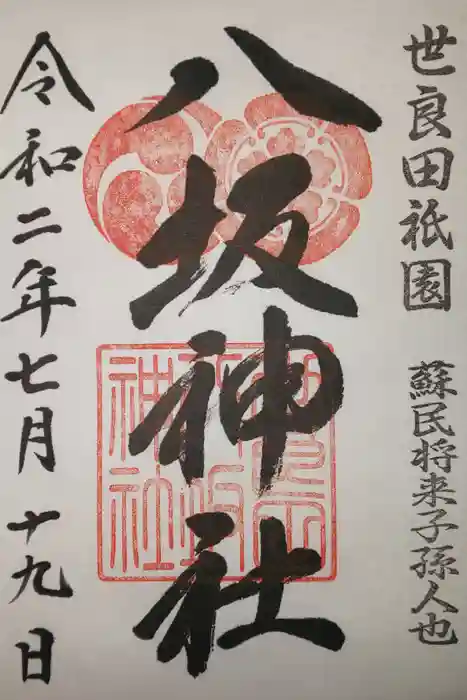 世良田祇園 蘇民将来子孫人也
八坂神社
令和二年七月十九日